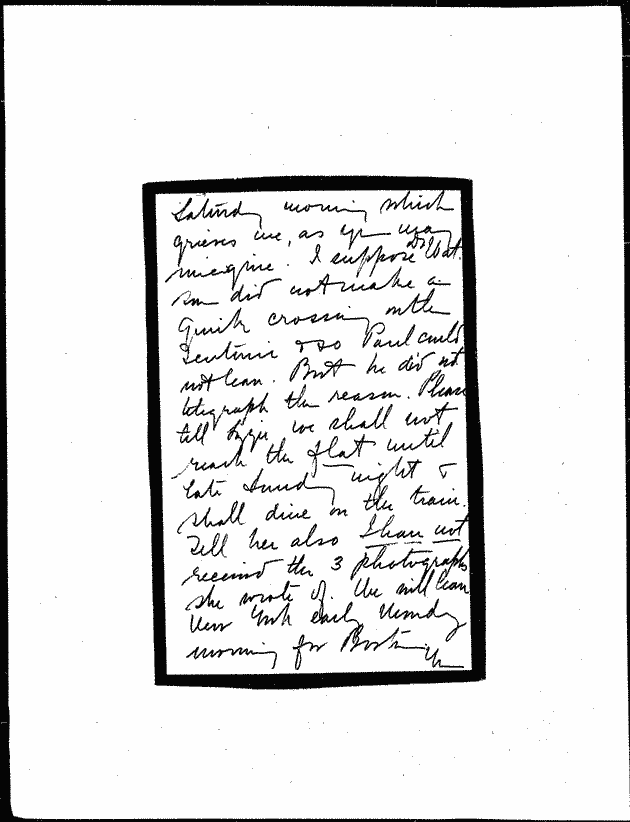 Saturday morning which
grieves me, as you may
imagine. I suppose Dr Wat-
son did not make a
quick crossing on the
Teutonic & so Paul could
not leave. But he did not
telegraph the reason. Please
tell Lizzie we shall not
reach the flat until
late Sunday night &
shall dine on the train.
Tell her also I have not
received the 3 photographs
she wrote of. We will leave
New York early Monday
morning for Boston